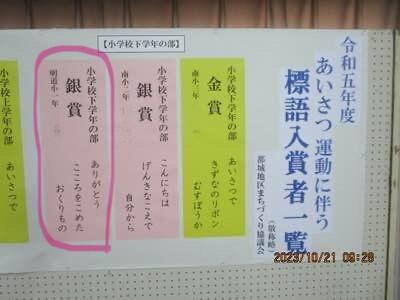 令和五年度
あいさつ運動に伴う
標語入賞者一覧
(敬称略)
都城地区まちづくり協議会
【小学校下学年の部】
小学校下学年の部
金賞
南小 三年
あいさつで
きずなのリボン
むすぼうか
小学校下学年の部
銀賞
南小 二年
こんにちは
げんきなこえで
自分から
小学校下学年の部
銀賞
明道小 一年
ありがとう
こころをこめた
おくりもの
小学校上学年の部
あいさつで
2023/10/21 09:28